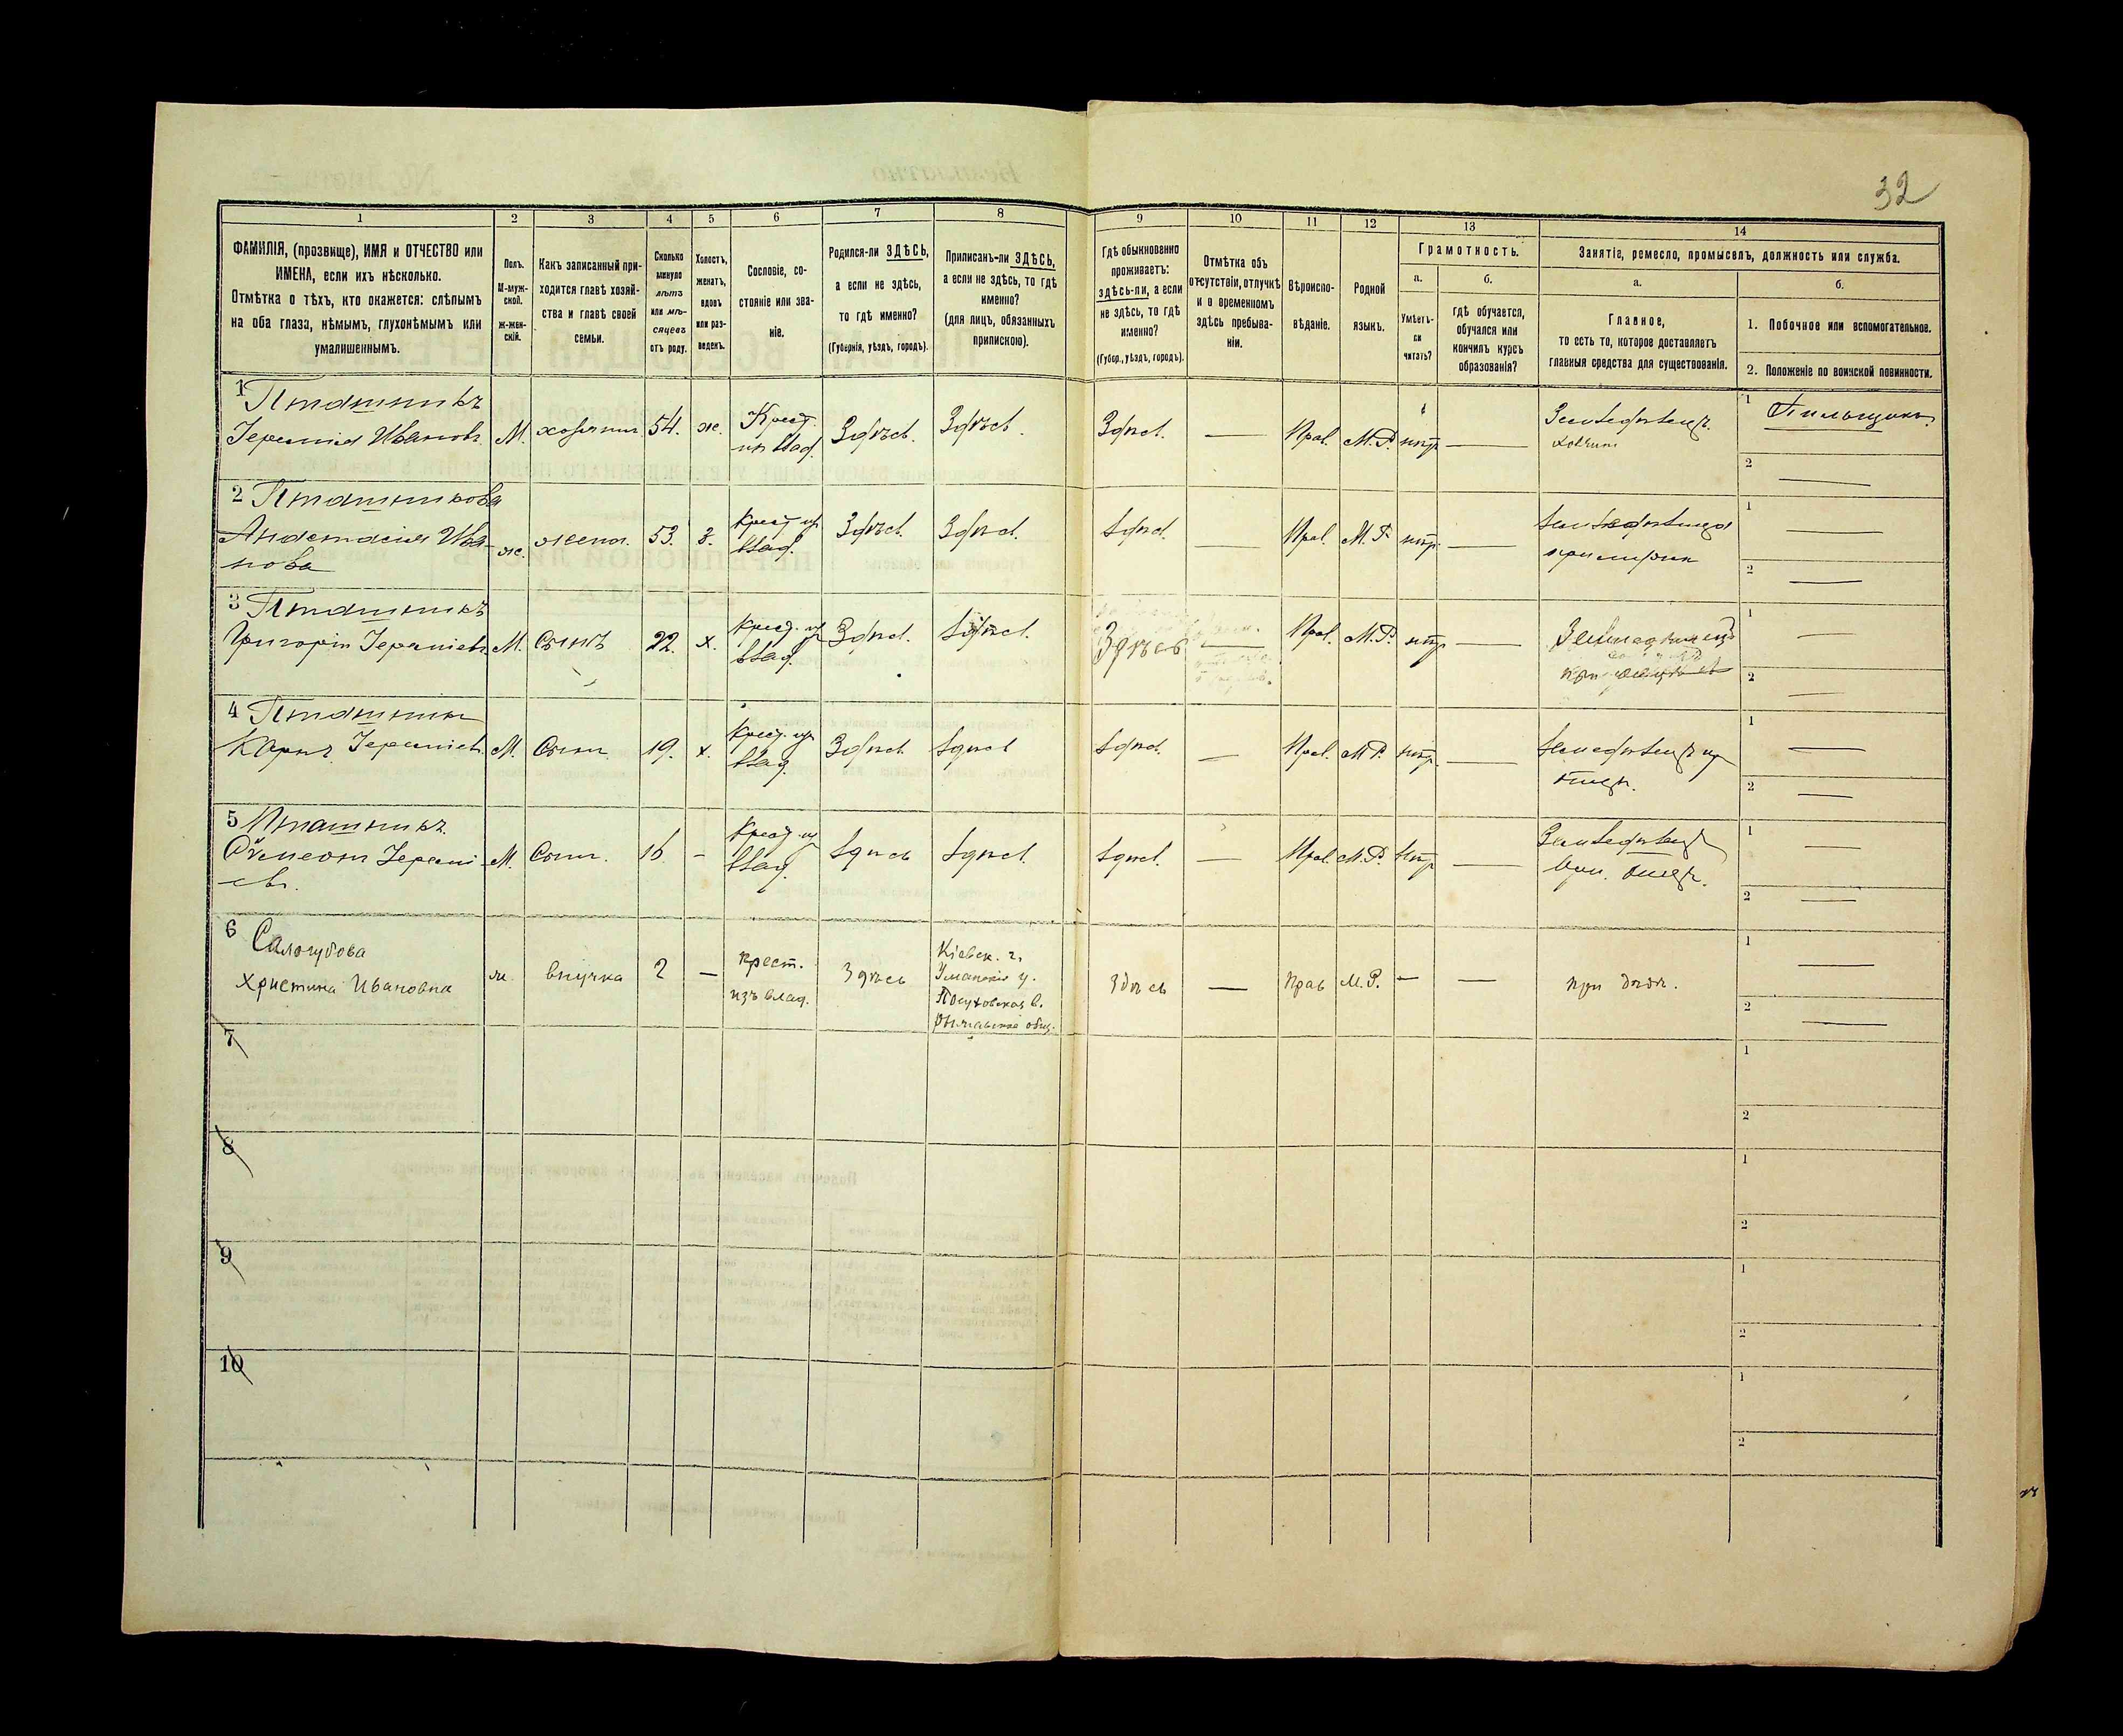 32
1 2 3 4 5 6 7 8 9 10 11 12 13 14
ФАМИЛІЯ, (прозвище), ИМЯ и ОТЧЕСТВО или
ИМЕНА, если ихъ нѣсколько.
Отмѣтка о тѣхъ, кто окажется: слѣпымъ
на оба глаза, нѣмымъ, глухонѣмымъ или
умалишеннымъ.
Полъ.
М-муж-
ской.
ж-жен-
скій.
Какъ записанный при-
ходится главѣ хозяй-
ства и главѣ своей
семьи.
Сколько
минуло
лѣтъ
или мѣ-
сяцевъ
отъ роду.
Холостъ,
женатъ,
вдовъ
или раз-
веденъ.
Сословіе, со-
стояніе или зва-
ніе.
Родился-ли ЗДѢСЬ,
а если не здѣсь,
то гдѣ именно?
(Губернія, уѣздъ, городъ).
Приписанъ-ли ЗДѢСЬ,
а если не здѣсь, то гдѣ
именно?
(для лицъ, обязанныхъ
припискою).
Гдѣ обыкновенно
проживаетъ:
здѣсь-ли, а если
не здѣсь, то гдѣ
именно?
(Губер., уѣздъ, городъ).
Отмѣтка объ
отсутствіи, отлучкѣ
и о временномъ
здѣсь пребыва-
ніи.
Вѣроиспо-
вѣданіе.
Родной
языкъ.
Грамотность.
а.
Умѣетъ-
ли
читать?
б.
гдѣ обучается,
обучался или
кончилъ курсъ
образованія?
Занятіе, ремесло, промыселъ, должность или служба.
а.
Главное,
то есть то, которое доставляетъ
главныя средства для существованія.
б.
1. Побочное или вспомогательное.
2. Положеніе по воинской повинности.
1 Пташникъ
Іеремія Ивановъ М. хозяинъ 54. ж. Крест. из влад. Здѣсь. Здѣсь. Здѣсь. — Прав. М.Р. нѣт — Земледѣлецъ. хозяин 1 Пильщикъ.
2 —
2 Пташникова
Анастасія Ива-
нова ж. жена. 53. з. Крест. из влад. Здѣсь. Здѣсь. Здѣсь. — Прав. М.Р. нѣт — 1 —
2 —
3 Пташникъ
Григорій Іереміев. М. Сынъ 22. х. Крест. из влад. Здѣсь. Здѣсь. Здѣсь — Прав. М.Р. нѣт — Земледѣлецъ при 1 —
2 —
4 Пташник
Карпъ Іереміев. М. Сын 19. х. Крест. из влад. Здѣсь Здѣсь Здѣсь. — Прав. М.Р. нѣт — Земледѣлецъ при отцѣ. 1 —
2 —
5 Пташникъ.
Іеремі-
ев. М. Сын. 16 - Крест. из влад. Здѣсь Здѣсь. Здѣсь. — Прав. М.Р. нѣт — Земледѣлец при отцѣ. 1 —
2 —
6 Саличубова
Христина Ивановна ж. внучка 2 — крест. изъ влад. Здѣсь
Кіевск. г.
Уманскій у.
в.
общ.
Здѣсь — Прав М.Р. — — при дѣдѣ. 1 —
2 —
7 1
2
8 1
2
9 1
2
10 1
2